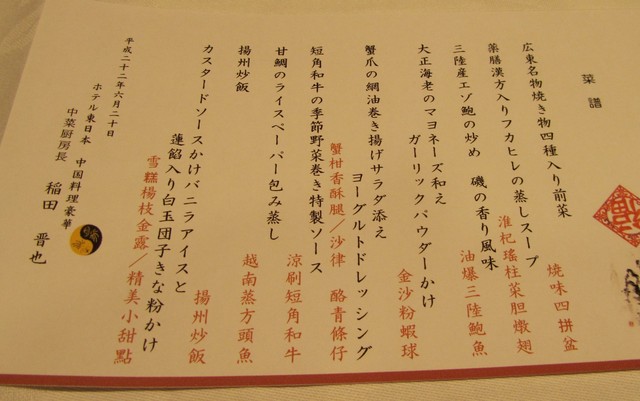 菜譜
広東名物焼き物四種入り前菜
焼味四拼盆
薬膳漢方入りフカヒレの蒸しスープ
淮杞瑤柱菜胆燉翅
三陸産エゾ鮑の炒め 磯の香り風味
油爆三陸鮑魚
大正海老のマヨネーズ和え
ガーリックパウダーかけ
金沙粉蝦球
蟹爪の網油巻き揚げサラダ添え
ヨーグルトドレッシング
蟹柑香酥腿／沙律 酪青條仔
短角和牛の季節野菜巻き特製ソース
涼刷短角和牛
甘鯛のライスペーパー包み蒸し
越南蒸方頭魚
揚州炒飯
揚州炒飯
カスタードソースかけバニラアイスと
蓮餡入り白玉団子きな粉かけ
雪糕楊枝金露／精美小甜點
平成二十二年六月二十日
ホテル東日本 中国料理豪華
中菜厨房長 稲田 晋也